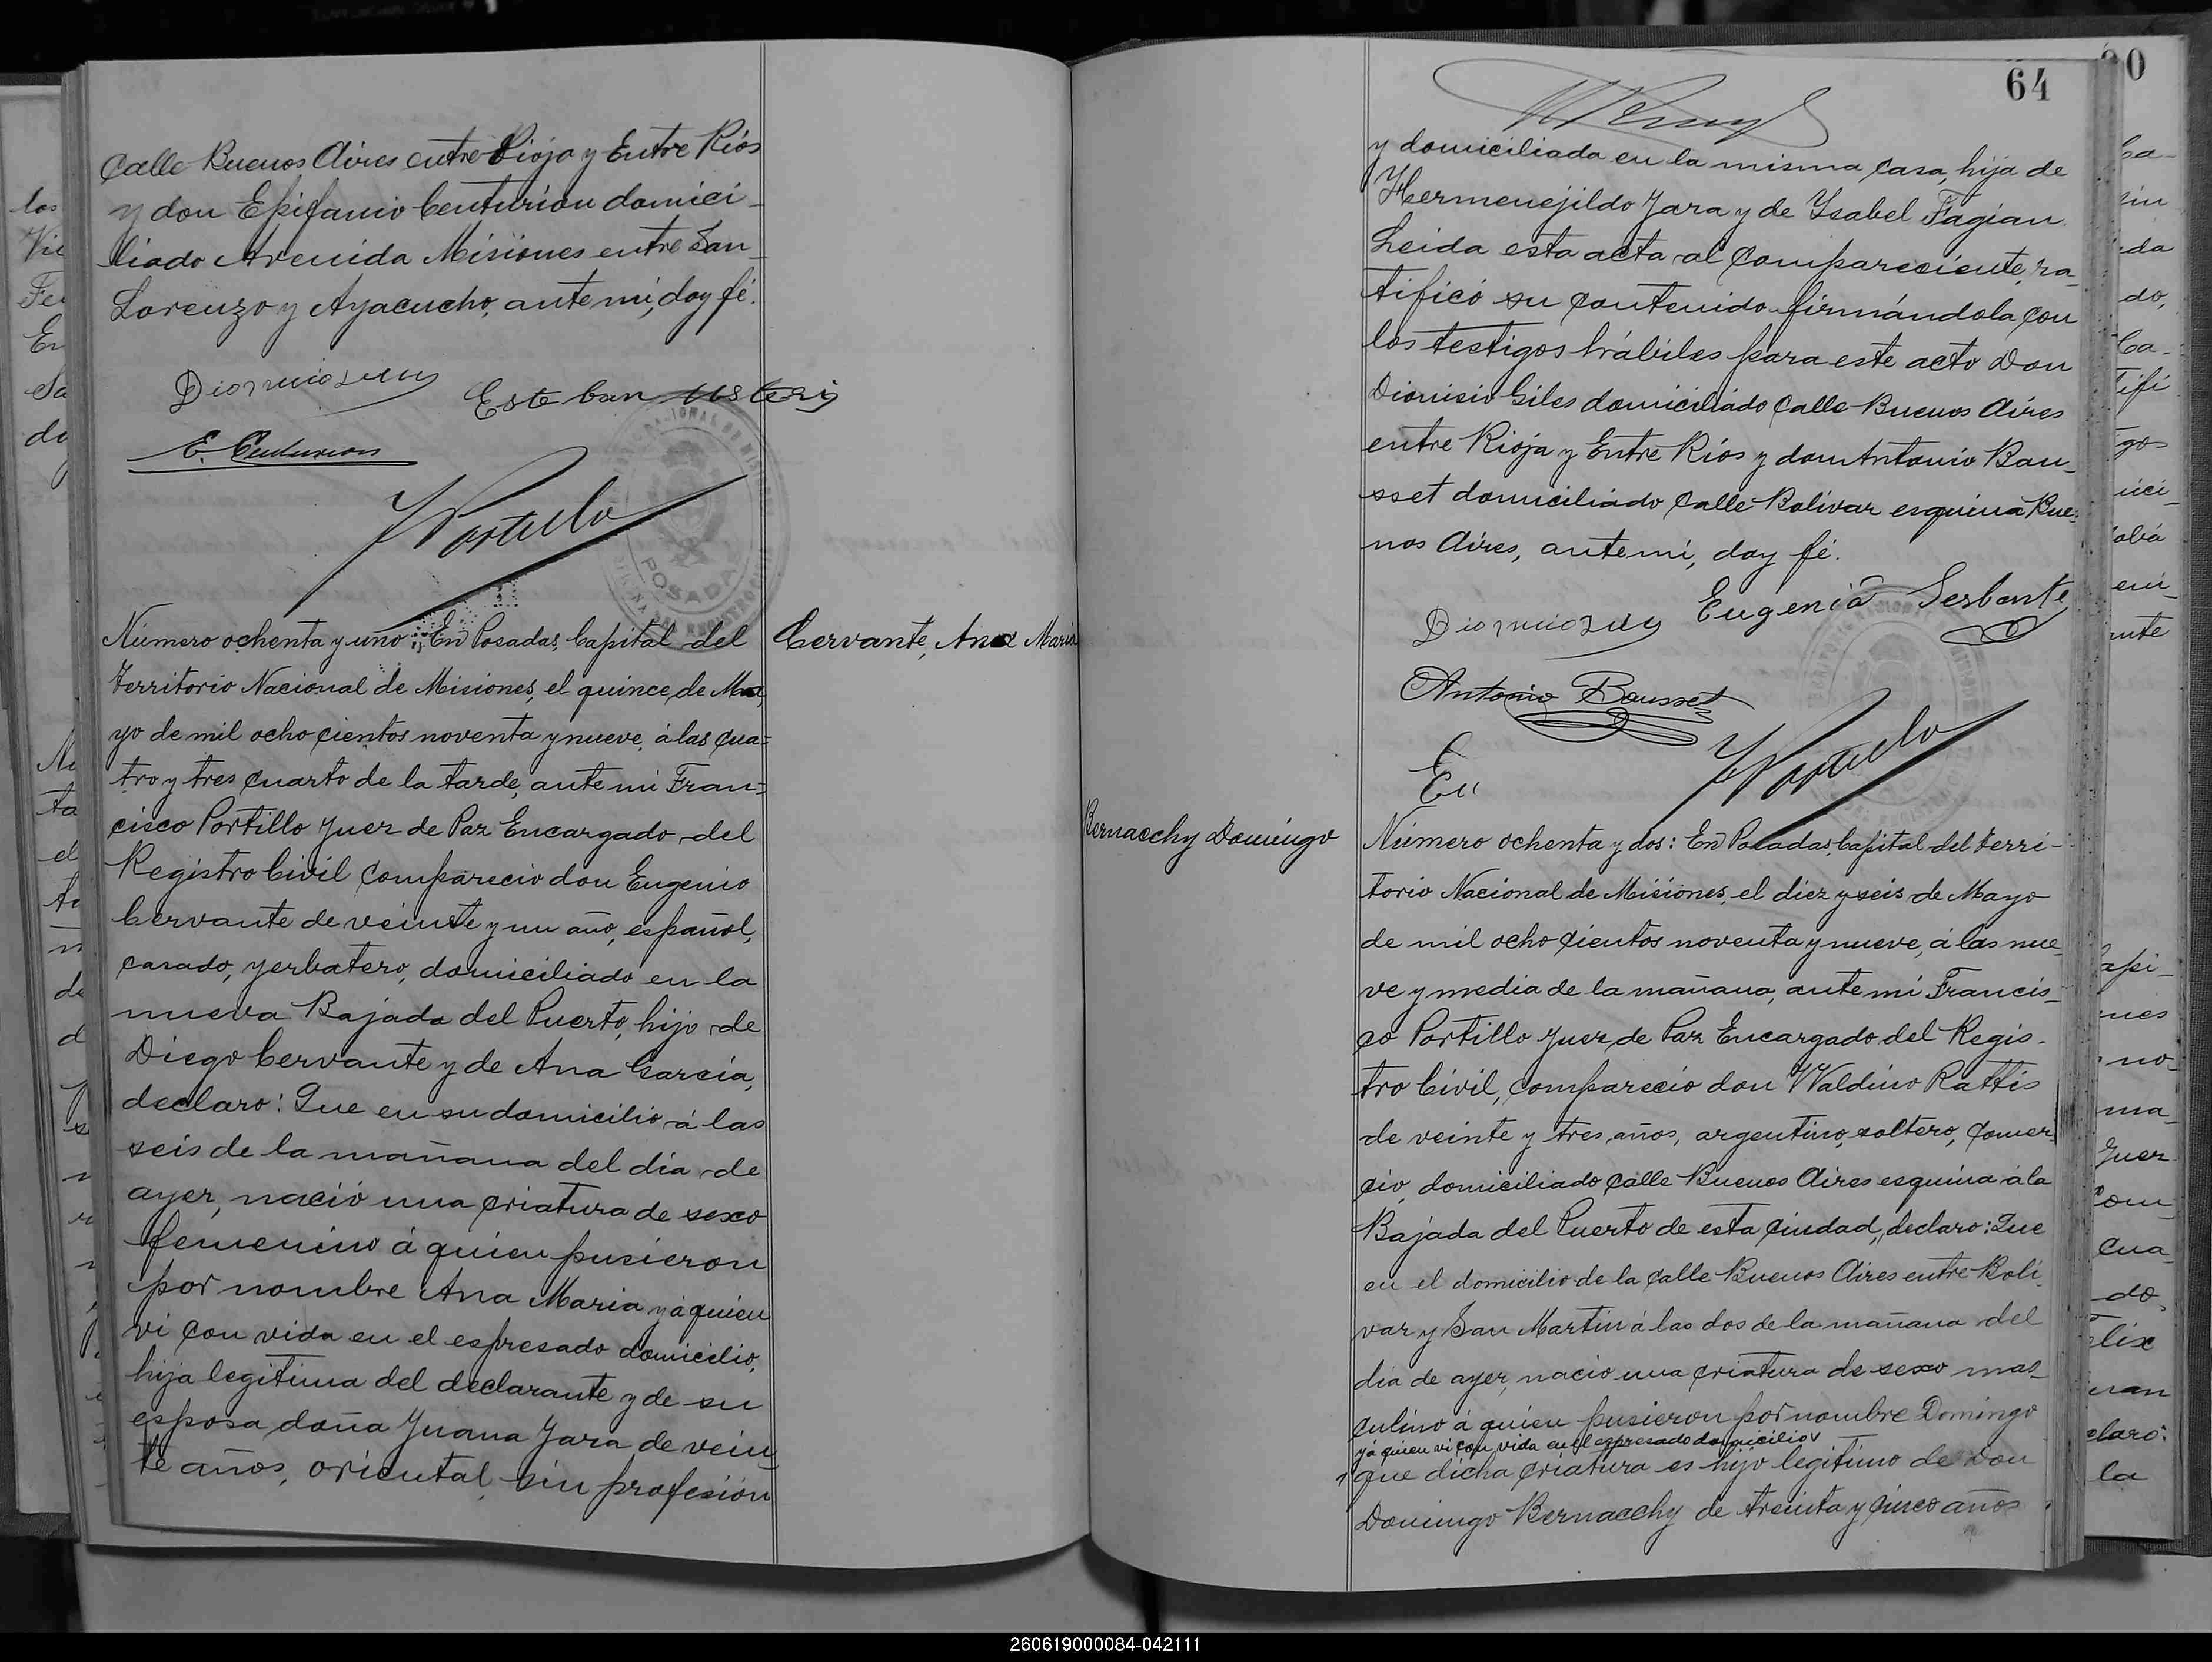 calle Buenos Aires entre Rioja y Entre Ríos
y don Epifanio Centurión domici-
liado Avenida Misiones entre San
Lorenzo y Ayacucho, ante mí, doy fé.
Esteban Usteri
E. Centurion
FPortillo
POSADA
Número ochenta y uno: En Posadas, Capital del
Territorio Nacional de Misiones, el quince de Ma-
yo de mil ochocientos noventa y nueve, á las cua-
tro y tres cuarto de la tarde, ante mi Fran-
cisco Portillo Juez de Paz Encargado del
Registro Civil compareció don Eugenio
Cervante de veinte y un año, español,
casado, yerbatero, domiciliado en la
nueva Bajada del Puerto, hijo de
Diego Cervante y de Ana García,
declaro: Que en su domicilio á las
seis de la mañana del día de
ayer, nació una criatura de sexo
femenino á quien pusieron
por nombre Ana Maria y á quien
vi con vida en el espresado domicilio,
hija legítima del declarante y de su
esposa doña Juana Jara de vein-
te años, oriental, sin profesión
Cervante, Ana Maria
64
y domiciliada en la misma casa, hija de
Hermenejildo Jara y de Ysabel Fagian.
Leida esta acta al compareciente, ra-
tificó su contenido firmándola con
los testigos hábiles para este acto Don
Dionisio Giles domiciliado calle Buenos Aires
entre Rioja y Entre Ríos y don Antonio Bau-
sset domiciliado calle Bolívar esquina Bue-
nos Aires, ante mí, doy fé.
Eugenio Serbante
Antonio Bausset
FPortillo
En
Bernacchy Domingo
Número ochenta y dos: En Posadas, Capital del Terri-
torio Nacional de Misiones, el diez y seis de Mayo
de mil ochocientos noventa y nueve, á las nue-
ve y media de la mañana, ante mí Francis-
co Portillo Juez de Paz Encargado del Regis-
tro Civil, compareció don Waldino Rattis
de veinte y tres, años, argentino, soltero, comer-
cio, domiciliado calle Buenos Aires esquina á la
Bajada del Puerto de esta ciudad, declaro: Que
en el domicilio de la calle Buenos Aires entre Bolí-
var y San Martín á las dos de la mañana del
día de ayer, nació una criatura de sexo mas-
culino á quien pusieron por nombre Domingo
y á quien vi con vida en el espresado domicilio
que dicha criatura es hijo legítimo de Don
Domingo Bernacchy de treinta y cinco años
260619000084-042111